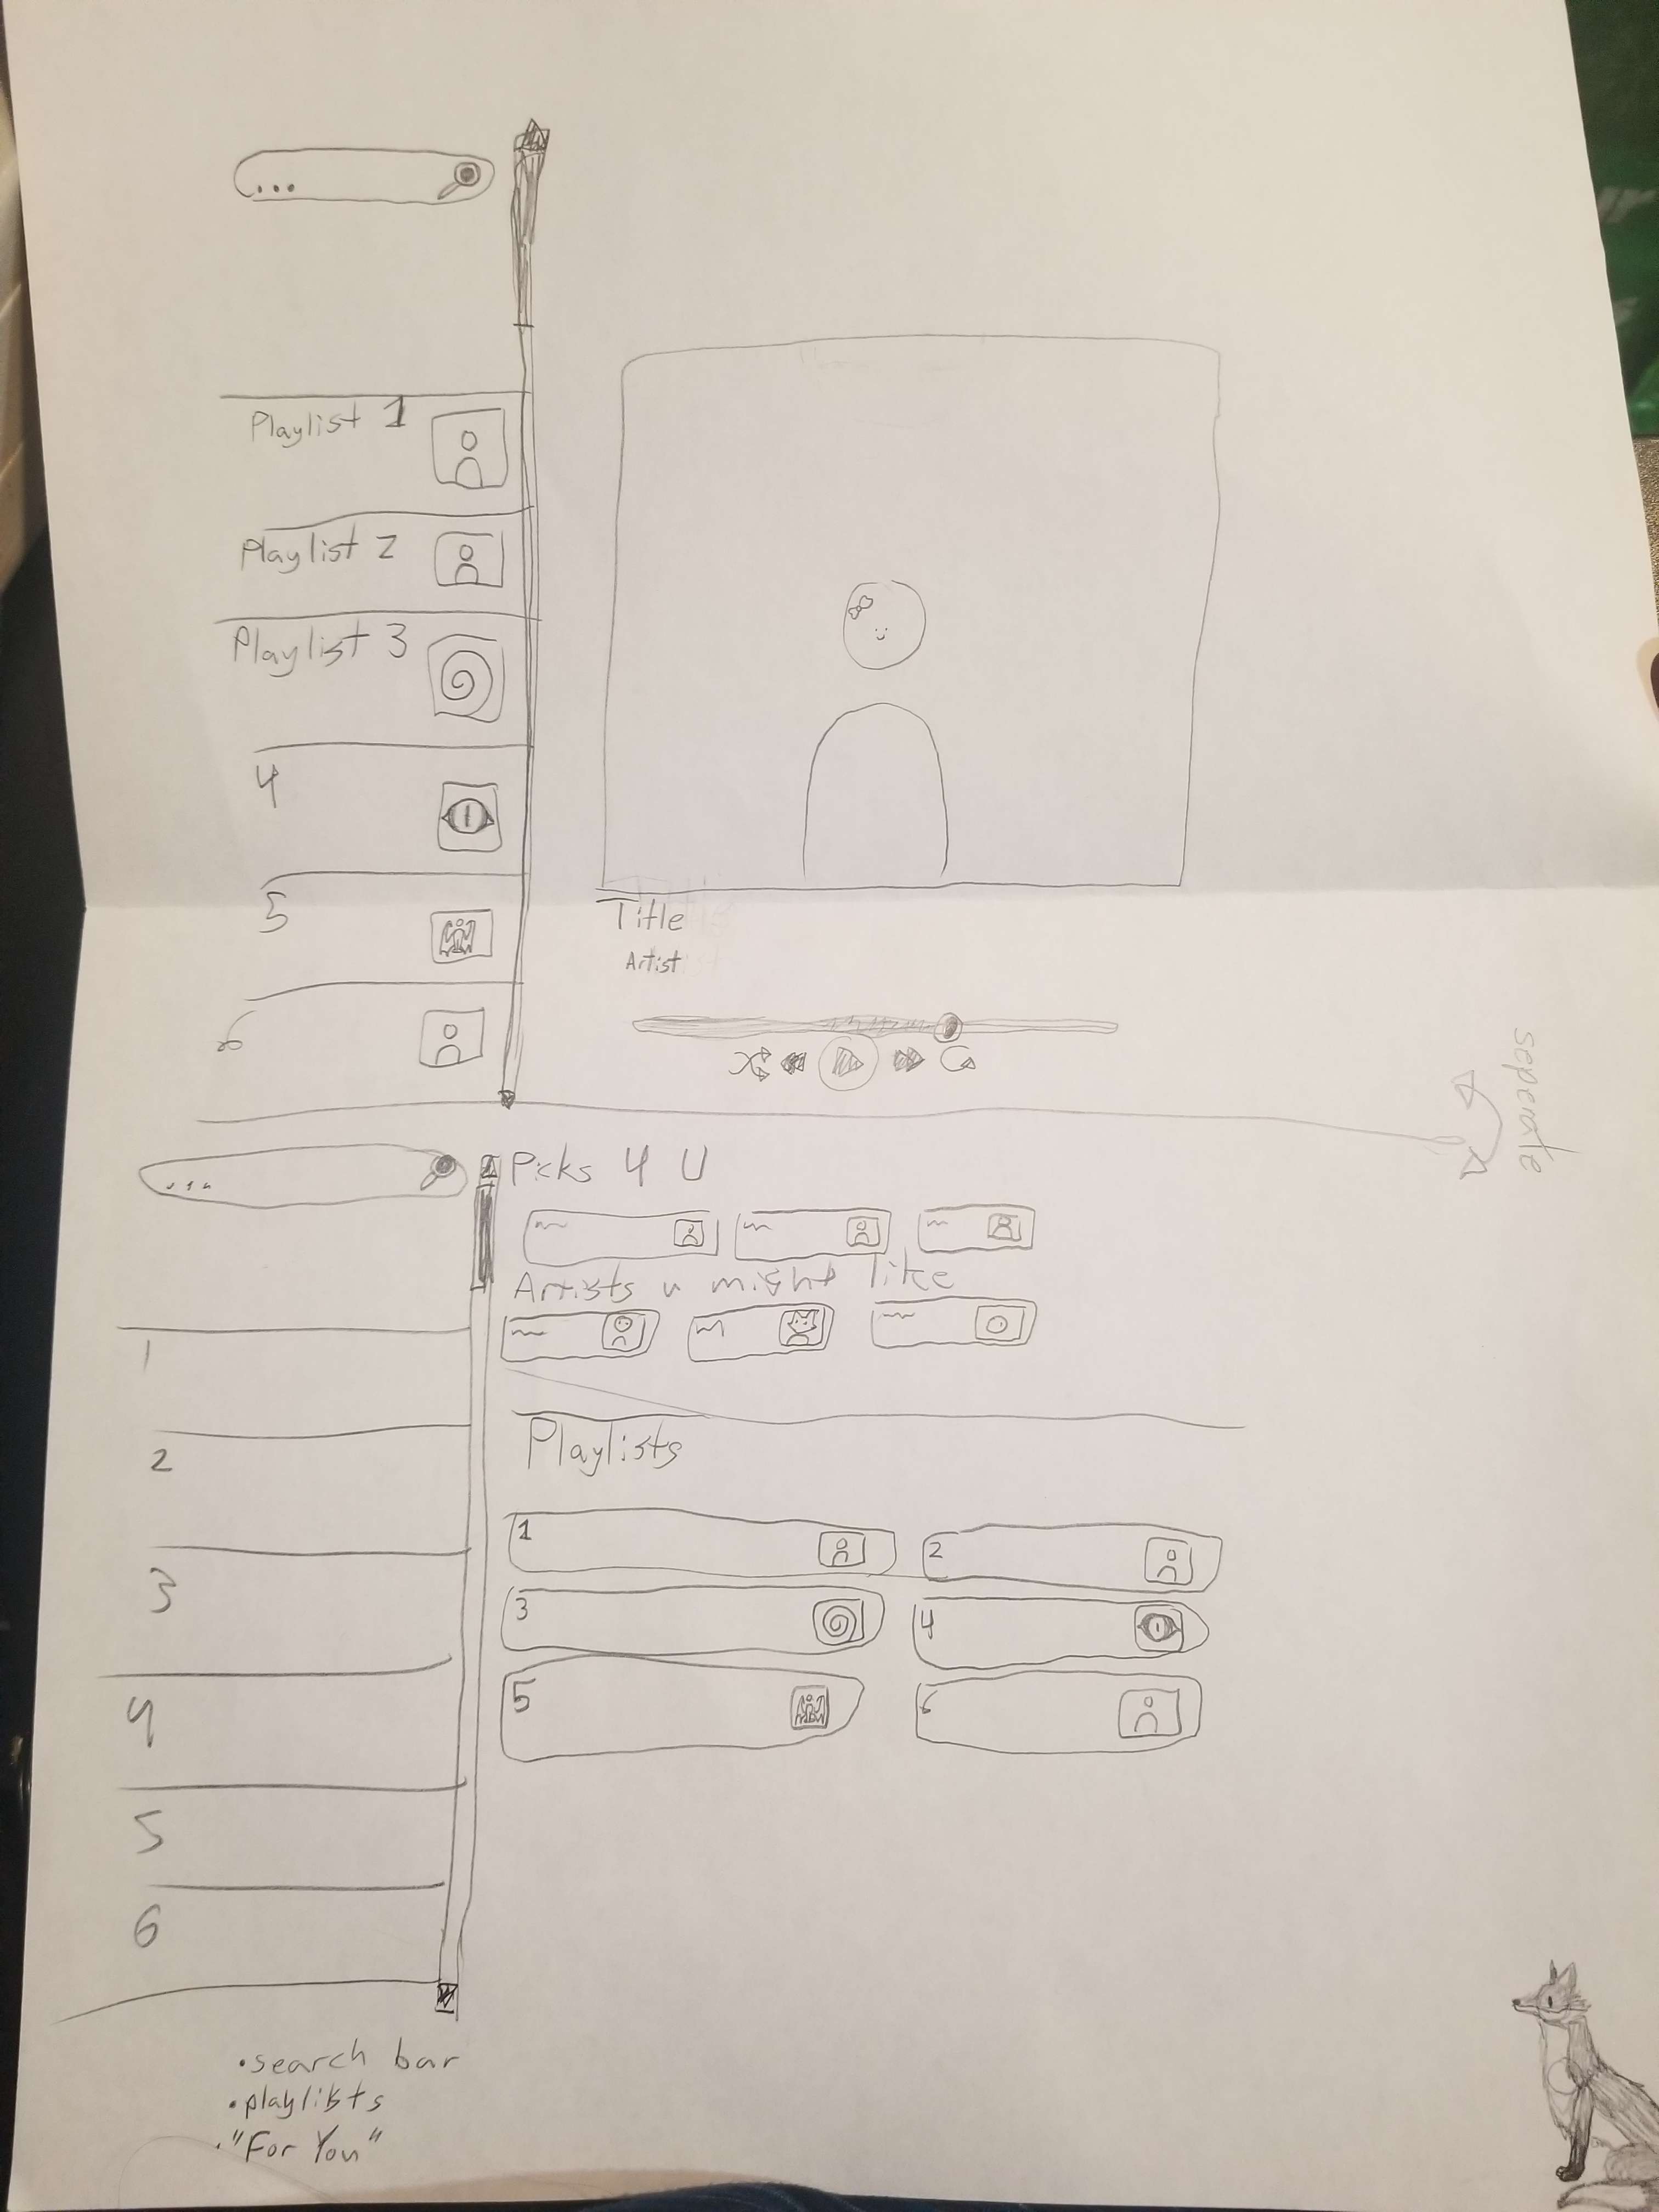 ...
Playlist 1
Playlist 2
Playlist 3
4
5
6
Title
Artist
seperate
...
Picks 4 U
Artists u might like
1
2
3
4
5
6
Playlists
1
2
3
4
5
6
•search bar
•playlists
•"For You"